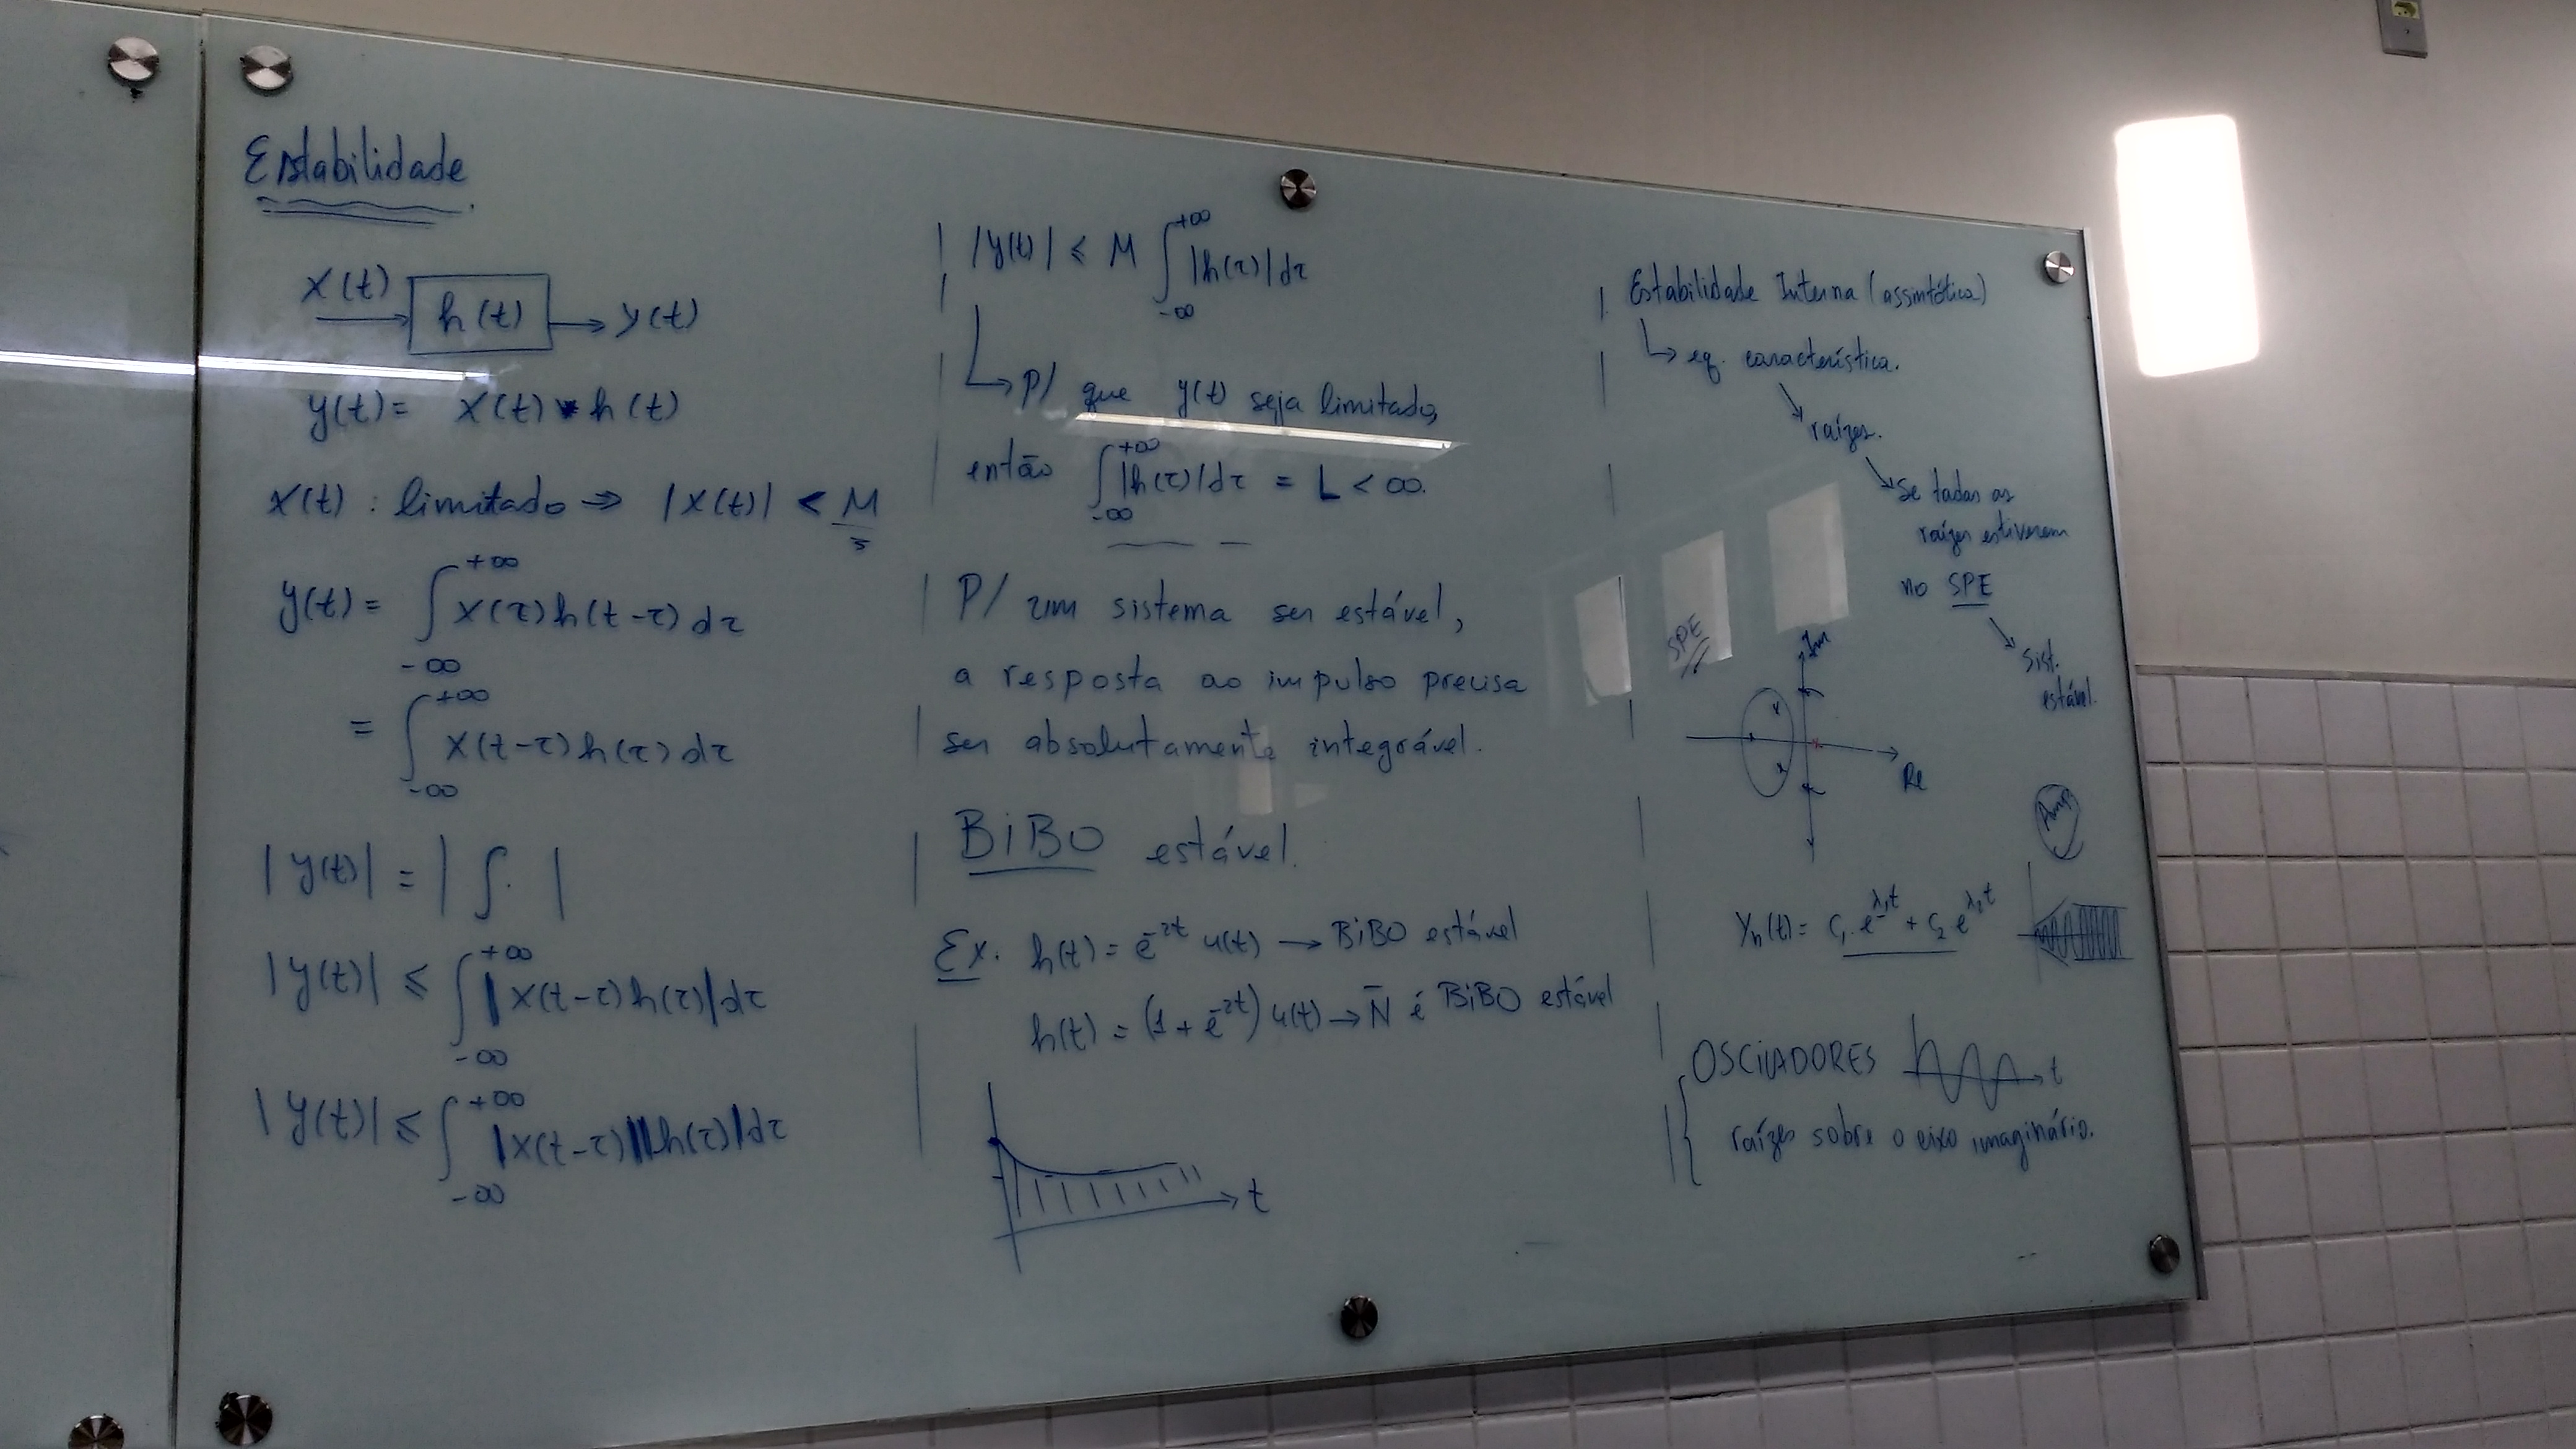 Estabilidade
x(t)
h(t)
y(t)
y(t) = x(t) * h(t)
x(t) : limitado ⇒ |x(t)| < M
y(t) = ∫_{-∞}^{+∞} x(τ) h(t-τ) dτ
= ∫_{-∞}^{+∞} x(t-τ) h(τ) dτ
|y(t)| = | ∫. |
|y(t)| ≤ ∫_{-∞}^{+∞} |x(t-τ) h(τ)| dτ
|y(t)| ≤ ∫_{-∞}^{+∞} |x(t-τ)||h(τ)| dτ
|y(t)| ≤ M ∫_{-∞}^{+∞} |h(τ)| dτ
↳ p/ que y(t) seja limitado,
então ∫_{-∞}^{+∞} |h(τ)| dτ = L < ∞.
P/ um sistema ser estável,
a resposta ao impulso precisa
ser absolutamente integrável.
BiBO estável.
Ex. h(t) = e^{-2t} u(t) → BiBO estável
h(t) = (1 + e^{-2t}) u(t) → N̄ é BiBO estável
t
Estabilidade Interna (assintótica)
↳ eq. característica.
raízes.
Se todas as
raízes estiverem
no SPE
Sist.
estável.
SPE
Im
Re
Amp
y_h(t) = C₁.e^{λ₁t} + C₂ e^{λ₂t}
OSCILADORES
t
raízes sobre o eixo imaginário.